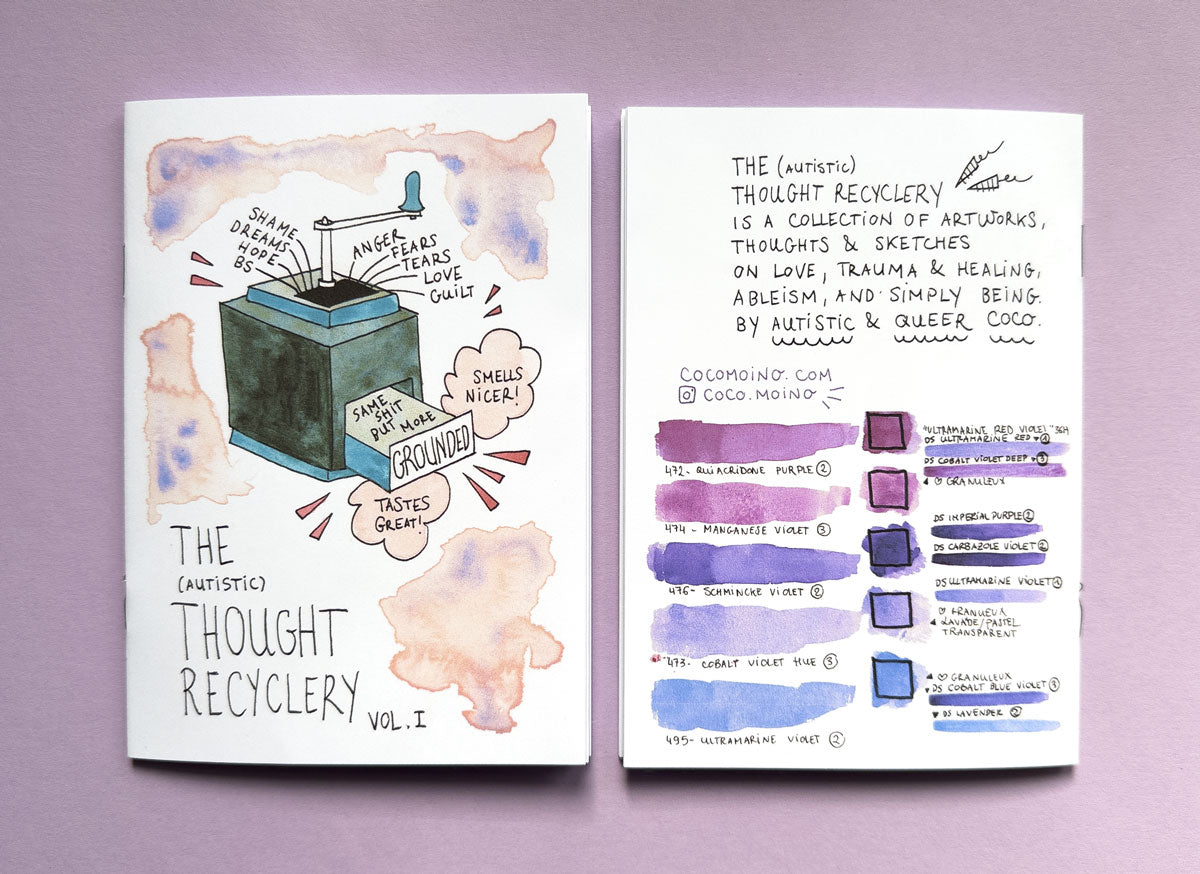 SHAME
DREAMS
HOPE
BS
ANGER
FEARS
TEARS
LOVE
GUILT
SMELLS
NICER!
SAME
SHIT
BUT MORE
GROUNDED
TASTES
GREAT!
THE
(AUTISTIC)
THOUGHT
RECYCLERY
VOL.I
THE (AUTISTIC)
THOUGHT RECYCLERY
IS A COLLECTION OF ARTWORKS,
THOUGHTS & SKETCHES
ON LOVE, TRAUMA & HEALING,
ABLEISM, AND SIMPLY BEING.
BY AUTISTIC & QUEER COCO.
COCOMOINO.COM
COCO.MOINO
472- QUIACRIDONE PURPLE ②
474 - MANGANESE VIOLET ③
476- SCHMINCKE VIOLET ②
473- COBALT VIOLET HUE ③
495- ULTRAMARINE VIOLET ②
"ULTRAMARINE RED VIOLET"
DS ULTRAMARINE RED ▾ ①
DS COBALT VIOLET DEEP ▾ ③
◂ ♡ GRANULEUX
DS IMPERIAL PURPLE ②
DS CARBAZOLE VIOLET ②
DS ULTRAMARINE VIOLET ①
♡ GRANUEUX
◂ LAVADE/PASTEL
TRANSPARENT
◂ ♡ GRANULEUX
▾ DS COBALT BLUE VIOLET ③
▾ DS LAVENDER ②